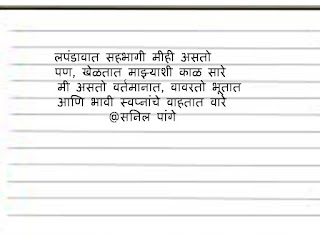 लपंडावात सहभागी मीही असतो
पण, खेळतात माझ्याशी काळ सारे
मी असतो वर्तमानात, वावरतो भूतात
आणि भावी स्वप्नांचे वाहतात वारे
@सनिल पांगे